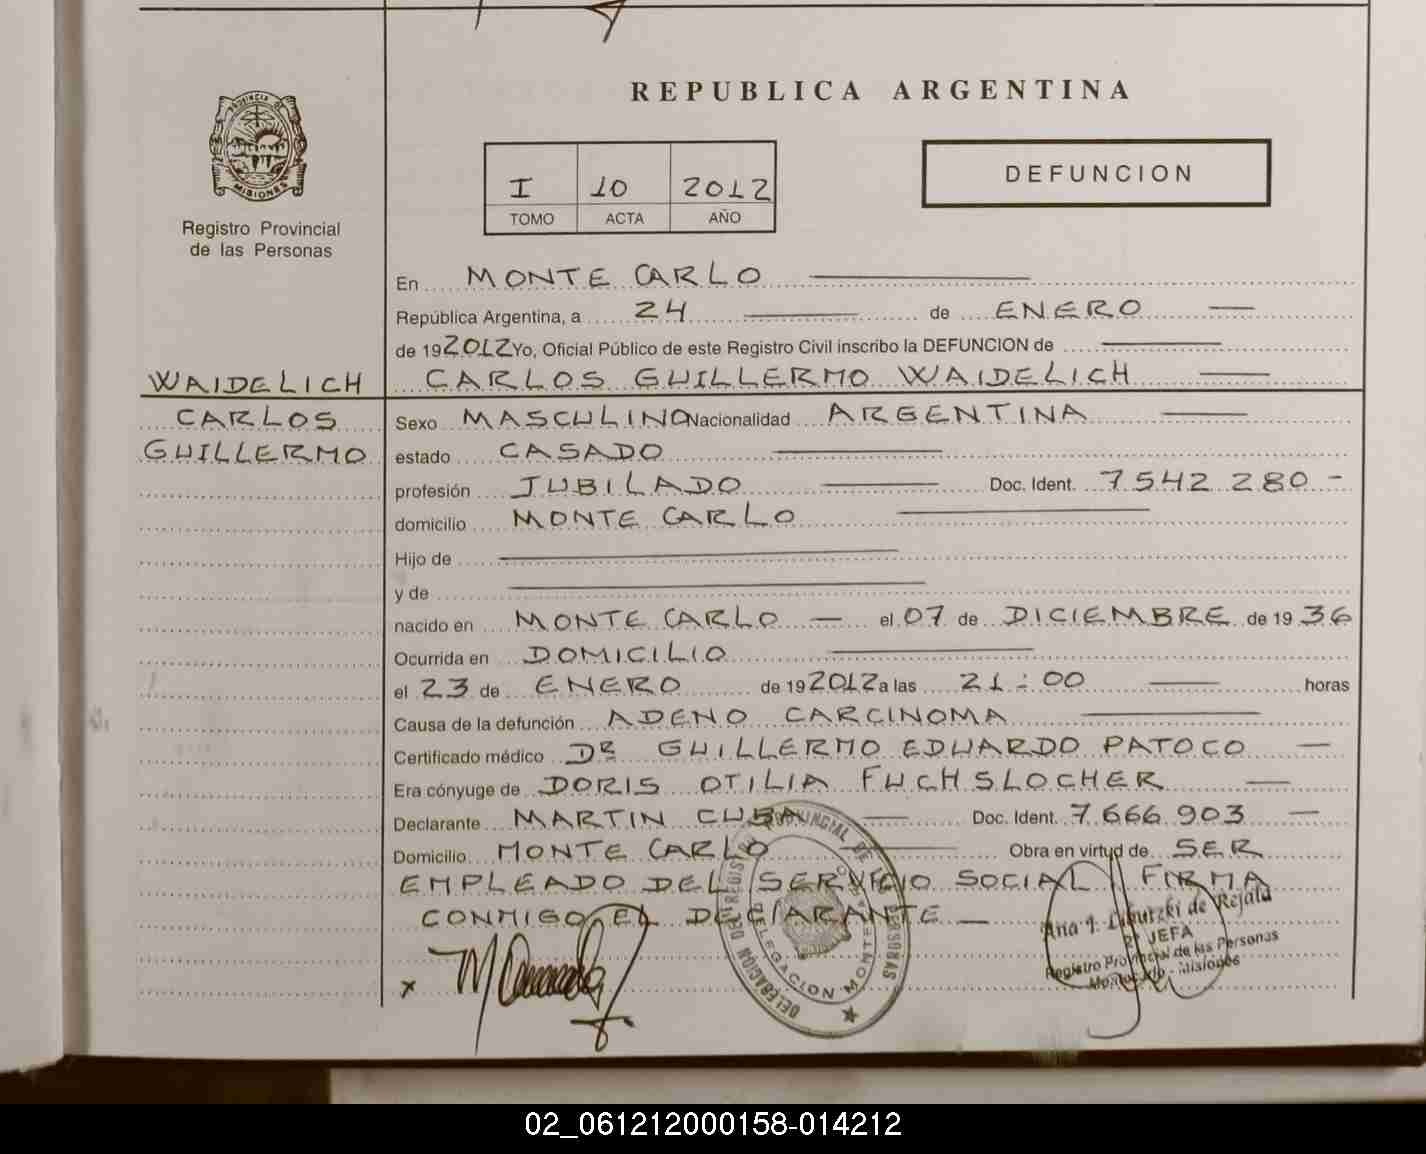 REPUBLICA ARGENTINA
PROVINCIA DE
MISIONES
Registro Provincial
de las Personas
I 10 2012
TOMO ACTA AÑO
DEFUNCION
En MONTE CARLO
República Argentina, a 24 de ENERO
de 192012 Yo, Oficial Público de este Registro Civil inscribo la DEFUNCION de
CARLOS GUILLERMO WAIDELICH
WAIDELICH
CARLOS
GUILLERMO
Sexo MASCULINO Nacionalidad ARGENTINA
estado CASADO
profesión JUBILADO Doc. Ident. 7542280 -
domicilio MONTE CARLO
Hijo de
y de
nacido en MONTE CARLO — el 07 de DICIEMBRE de 1936
Ocurrida en DOMICILIO
el 23 de ENERO de 192012 a las 21:00 horas
Causa de la defunción ADENO CARCINOMA
Certificado médico DR GUILLERMO EDUARDO PATOCO —
Era cónyuge de DORIS OTILIA FUCHSLOCHER —
Declarante MARTIN CUBA — Doc. Ident. 7.666.903 —
Domicilio MONTE CARLO Obra en virtud de SER
EMPLEADO DEL SERVICIO SOCIAL FIRMA
CONMIGO EL DECLARANTE —
DELEGACION DEL REGISTRO PROVINCIAL DE PERSONAS
DELEGACION MONTE
Ana de Rejala
JEFA
Registro Provincial de las Personas
Montecarlo - Misiones
x
02_061212000158-014212